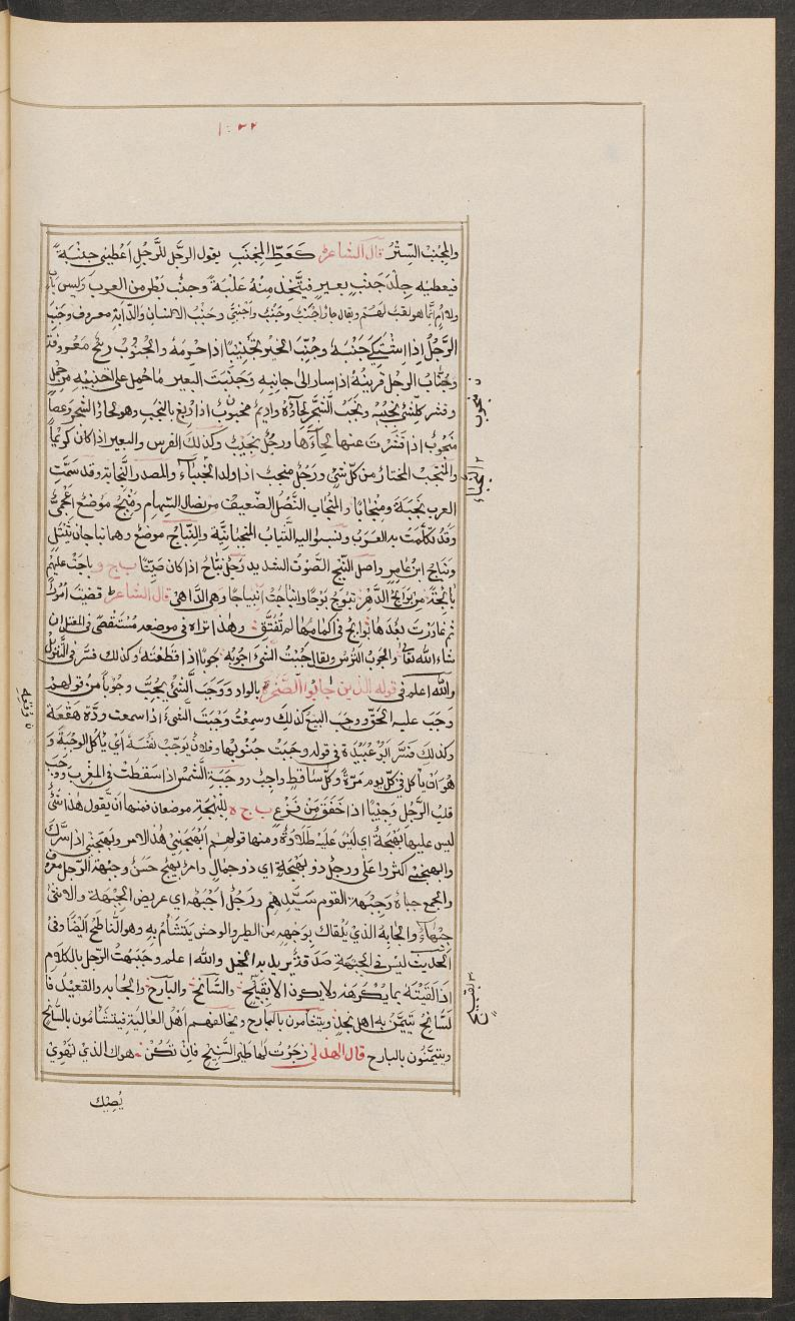 ١٠٣٢
والمِجْنَبُ السِّتْرُ قال الشاعر كَعَطِّ المِجْنَبِ يقول الرجُل للرَّجُلِ اَعْطِنِي جَنْبَةً
فيعطيه جِلْدَ جَنْبِ بعيرٍ فيتَّخِذ مِنْهُ عُلْبَةً وجنْب بَطْن من العرب وليس بأبٍ
ولا اُمٍّ اِنَّما هو لقبٌ لهم ويقال جارٌ اَجْنَب وجَنَب وجُنُب واَجْنَبِيّ وجَنْبُ الانسان والدّابّة معروف وجَنِبَ
الرَّجُلُ اِذا اشتكي جَنْبَهُ وجُنِّبَ الخيرَ تجنيبًا اذا حُرِمَهُ والجَنُوبُ ريحٌ معروفة
وجَنَّابُ الرجُل قرينهُ اذا سار الى جانبه وجَنَّبَتَ البعير ما حُمِل على جَنْبَيْه من حِمْلٍ
وقشر كلّ شئ نَجَبُه ونَجَبُ الشَّجَر لِحاؤه واديمٌ منجوبٌ اذا دُبِغ بالنَّجَب وهو لحاءُ الشجر وعصاً
مَنْجوبٌ اذا قَشَرْتَ عنها لحاءَها ورجُلٌ نجيبٌ وكذلك الفرس والبعير اذا كان كريماً
والمُنْتجَبُ المختار من كلّ شئٍ ورَجُل منجبٌ اذا ولد النُّجباءَ والمصدر النَّجابة وقد سَمَّتِ
العرب نَجَبَةَ ومِنْجابًا والمِنْجاب النَّصْلُ الضَّعيف من نصال السِّهام ومَنْبِجُ موضعٌ اَعْجَميٌّ
وقَدْ تكلَّمَت به العَرَبُ ونسبوا اليه الثِّيابُ المَنْبَجانيّة والنِّباجُ موضعٌ وهما نباجان ثَيْتَلٍ
ونباجُ ابن عامرٍ واصل النَّبْج الصَّوْتُ الشديد رَجُلٌ نبّاجٌ اذا كان صَيِّتًا ب ج و باجَتْ عليهم
بائجَةٌ من بَوائج الدَّهْر تَبُوجُ بَوْجًا وانْباجَتْ اَنبياجًا وهي الدّاهيةُ قال الشاعر قضيتَ اُمورًا
ثم غادَرتَ بَعْدَها بَوائجَ في اَكمامِها لم تُفَتَّقِ وهذا تراه في موضعه مُسْتَقْصًى في المعتلّ ان
شاء الله تعا والجَوْبُ التُرْسُ ويقال جُبْتُ الشئَ اَجُوبُه جوبًا اذا قطعْتَهُ وكذلك فُسِّر في التَّنْزِيل
والله اعلم في قوله الذين جابُوا الصَّخْرَ بالواد وَوَجَبَ الشّئُ يجِبُ وجُوبًا من قولهم
وجَبَ عليه الحَقّ ووجب البيعُ كذلك وسمِعْتُ وَجْبَةَ الشئ اذا سمعت وَدَّة هَقْعَة
وكذلك فَسَّرَ ابو عُبَيْدَة في قوله وجَبَتْ جُنوبها وفلانٌ يُوَجِّبُ نَفْسَهُ اَيْ ياكل الوجْبَةَ و
هو اَن ياكل في كلّ يوم مَرّةً وكلّ ساقطٍ واجبٌ ووجَبَتِ الشَّمْسُ اِذا سَقطَتْ في المغرب ووجَب
قلبُ الرَّجُل وَجْبًا اذا خَفَقَ مِن فَزَعٍ ب ج ه للبَهْجَةِ موضعان فمنها اَن يَقول هٰذا شئٌ
ليس عليه بَهْجَةٌ اي ليس عليه طَلاوةٌ ومنها قولهم اَبْهَجَنِي هٰذا الامر وبَهَجَنِي اذا سرَّك
وابهجني اكثروا على ورجلٌ ذو بَهْجَةٍ اي ذو جمالٍ وامرٌ بَهِيجٌ حَسَنٌ وجبهة الرّجل معروفة
والجمع جباهٌ وجَبْهَةُ القوم سَيِّدهم ورجُلٌ اَجْبَهُ اي عريض الجَبْهَة والانثى
جَبْهاءُ والجابهُ الذي يَلْقاك بوجْهِهِ من الطير والوحش يَتشأمُ به وهو النّاطح اَيضًا وفي
الحديث ليس في الجبهة صَدَقة يريد به الخيل والله اعلم وجَبَهْتُ الرّجل بالكلام
اذا لَقِيْتَهُ بما يكرهه ولا يكون الا بقبيح والسّانح والبارح والجابه والقعيد فا
لسّانح تَتَيَمَّن به اهل نجدٍ ويتشأمون بالبارح ويخالفهم اَهْل العالية فيتشأمون بالسّانح
ويتيمّنون بالبارح قال الهذلي زجَرْتُ لها طير السّنيح فان تكُن هواك الذي تهوى
يُصِبْك
منجوب
النجباء
بقبيح
وَقْعِه